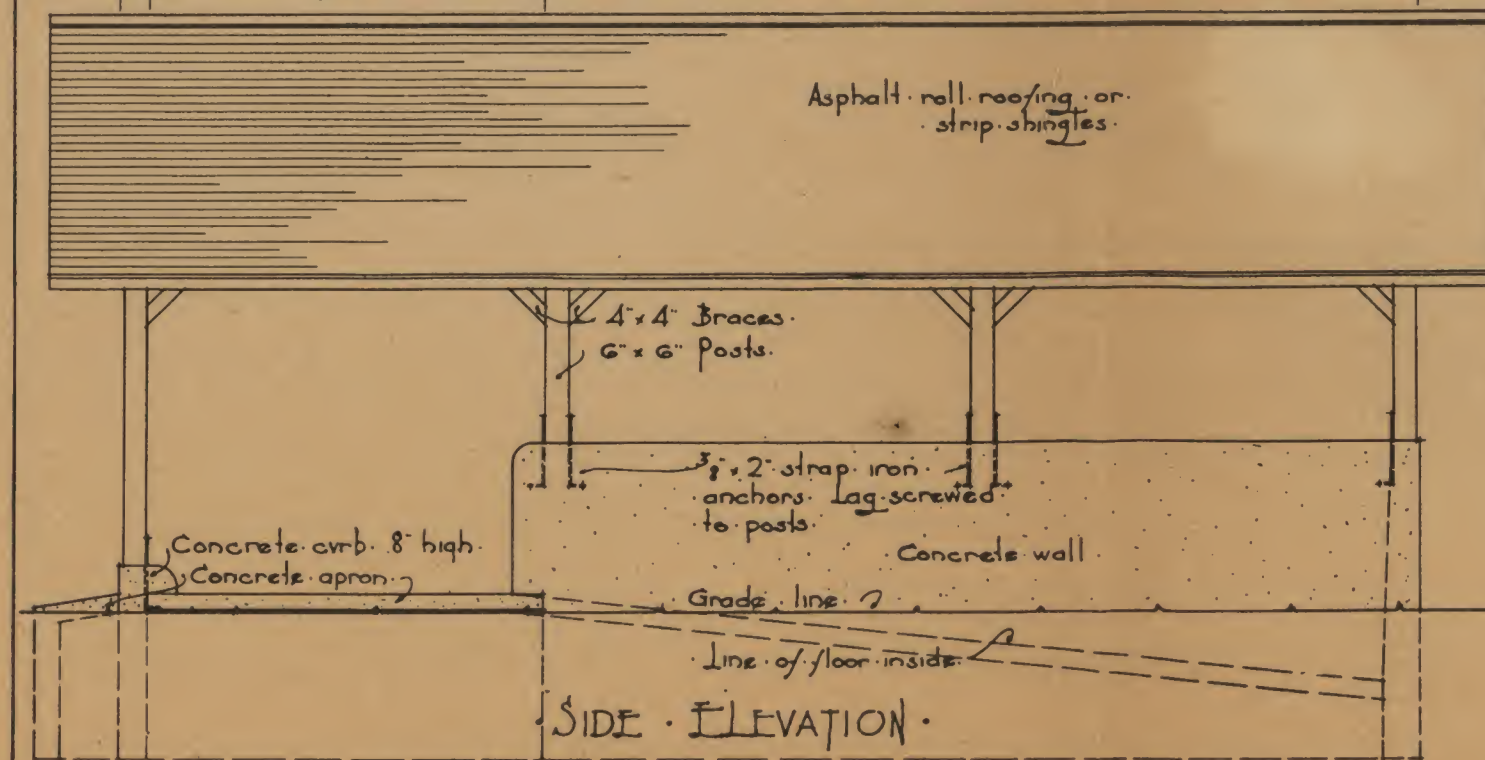 Asphalt · roll · roofing · or ·
· strip · shingles ·
4" x 4" Braces ·
6" x 6" Posts ·
3/8" x 2" strap · iron ·
· anchors · Lag · screwed ·
· to · posts ·
Concrete · curb · 8" high ·
Concrete · apron ·
· Concrete · wall ·
Grade · line ·
· Line · of · floor · inside ·
· SIDE · ELEVATION ·